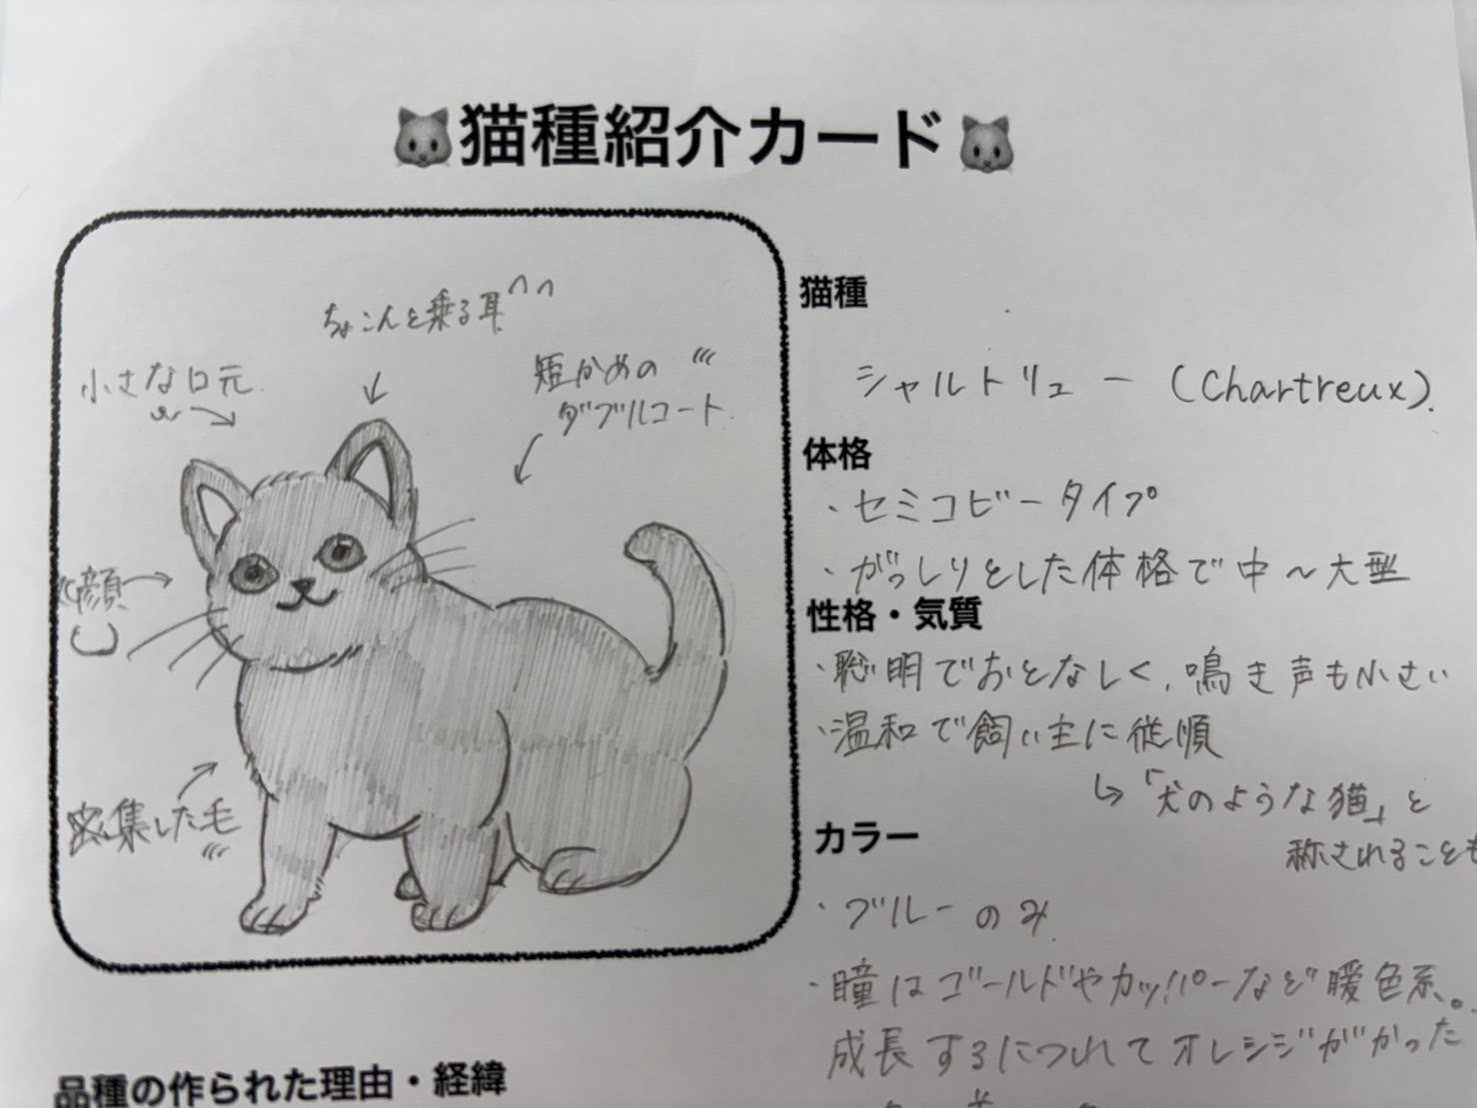 🐱猫種紹介カード🐱
ちょこんと乗る耳
小さな口元
短かめの
ダブルコート
顔
密集した毛
猫種
シャルトリュー (Chartreux).
体格
・セミコビータイプ
・がっしりとした体格で中〜大型
性格・気質
・聡明でおとなしく、鳴き声も小さい
・温和で飼い主に従順
↳「犬のような猫」と
称されることも
カラー
・ブルーのみ
・瞳はゴールドやカッパーなど暖色系。
成長するにつれてオレンジがかった
品種の作られた理由・経緯